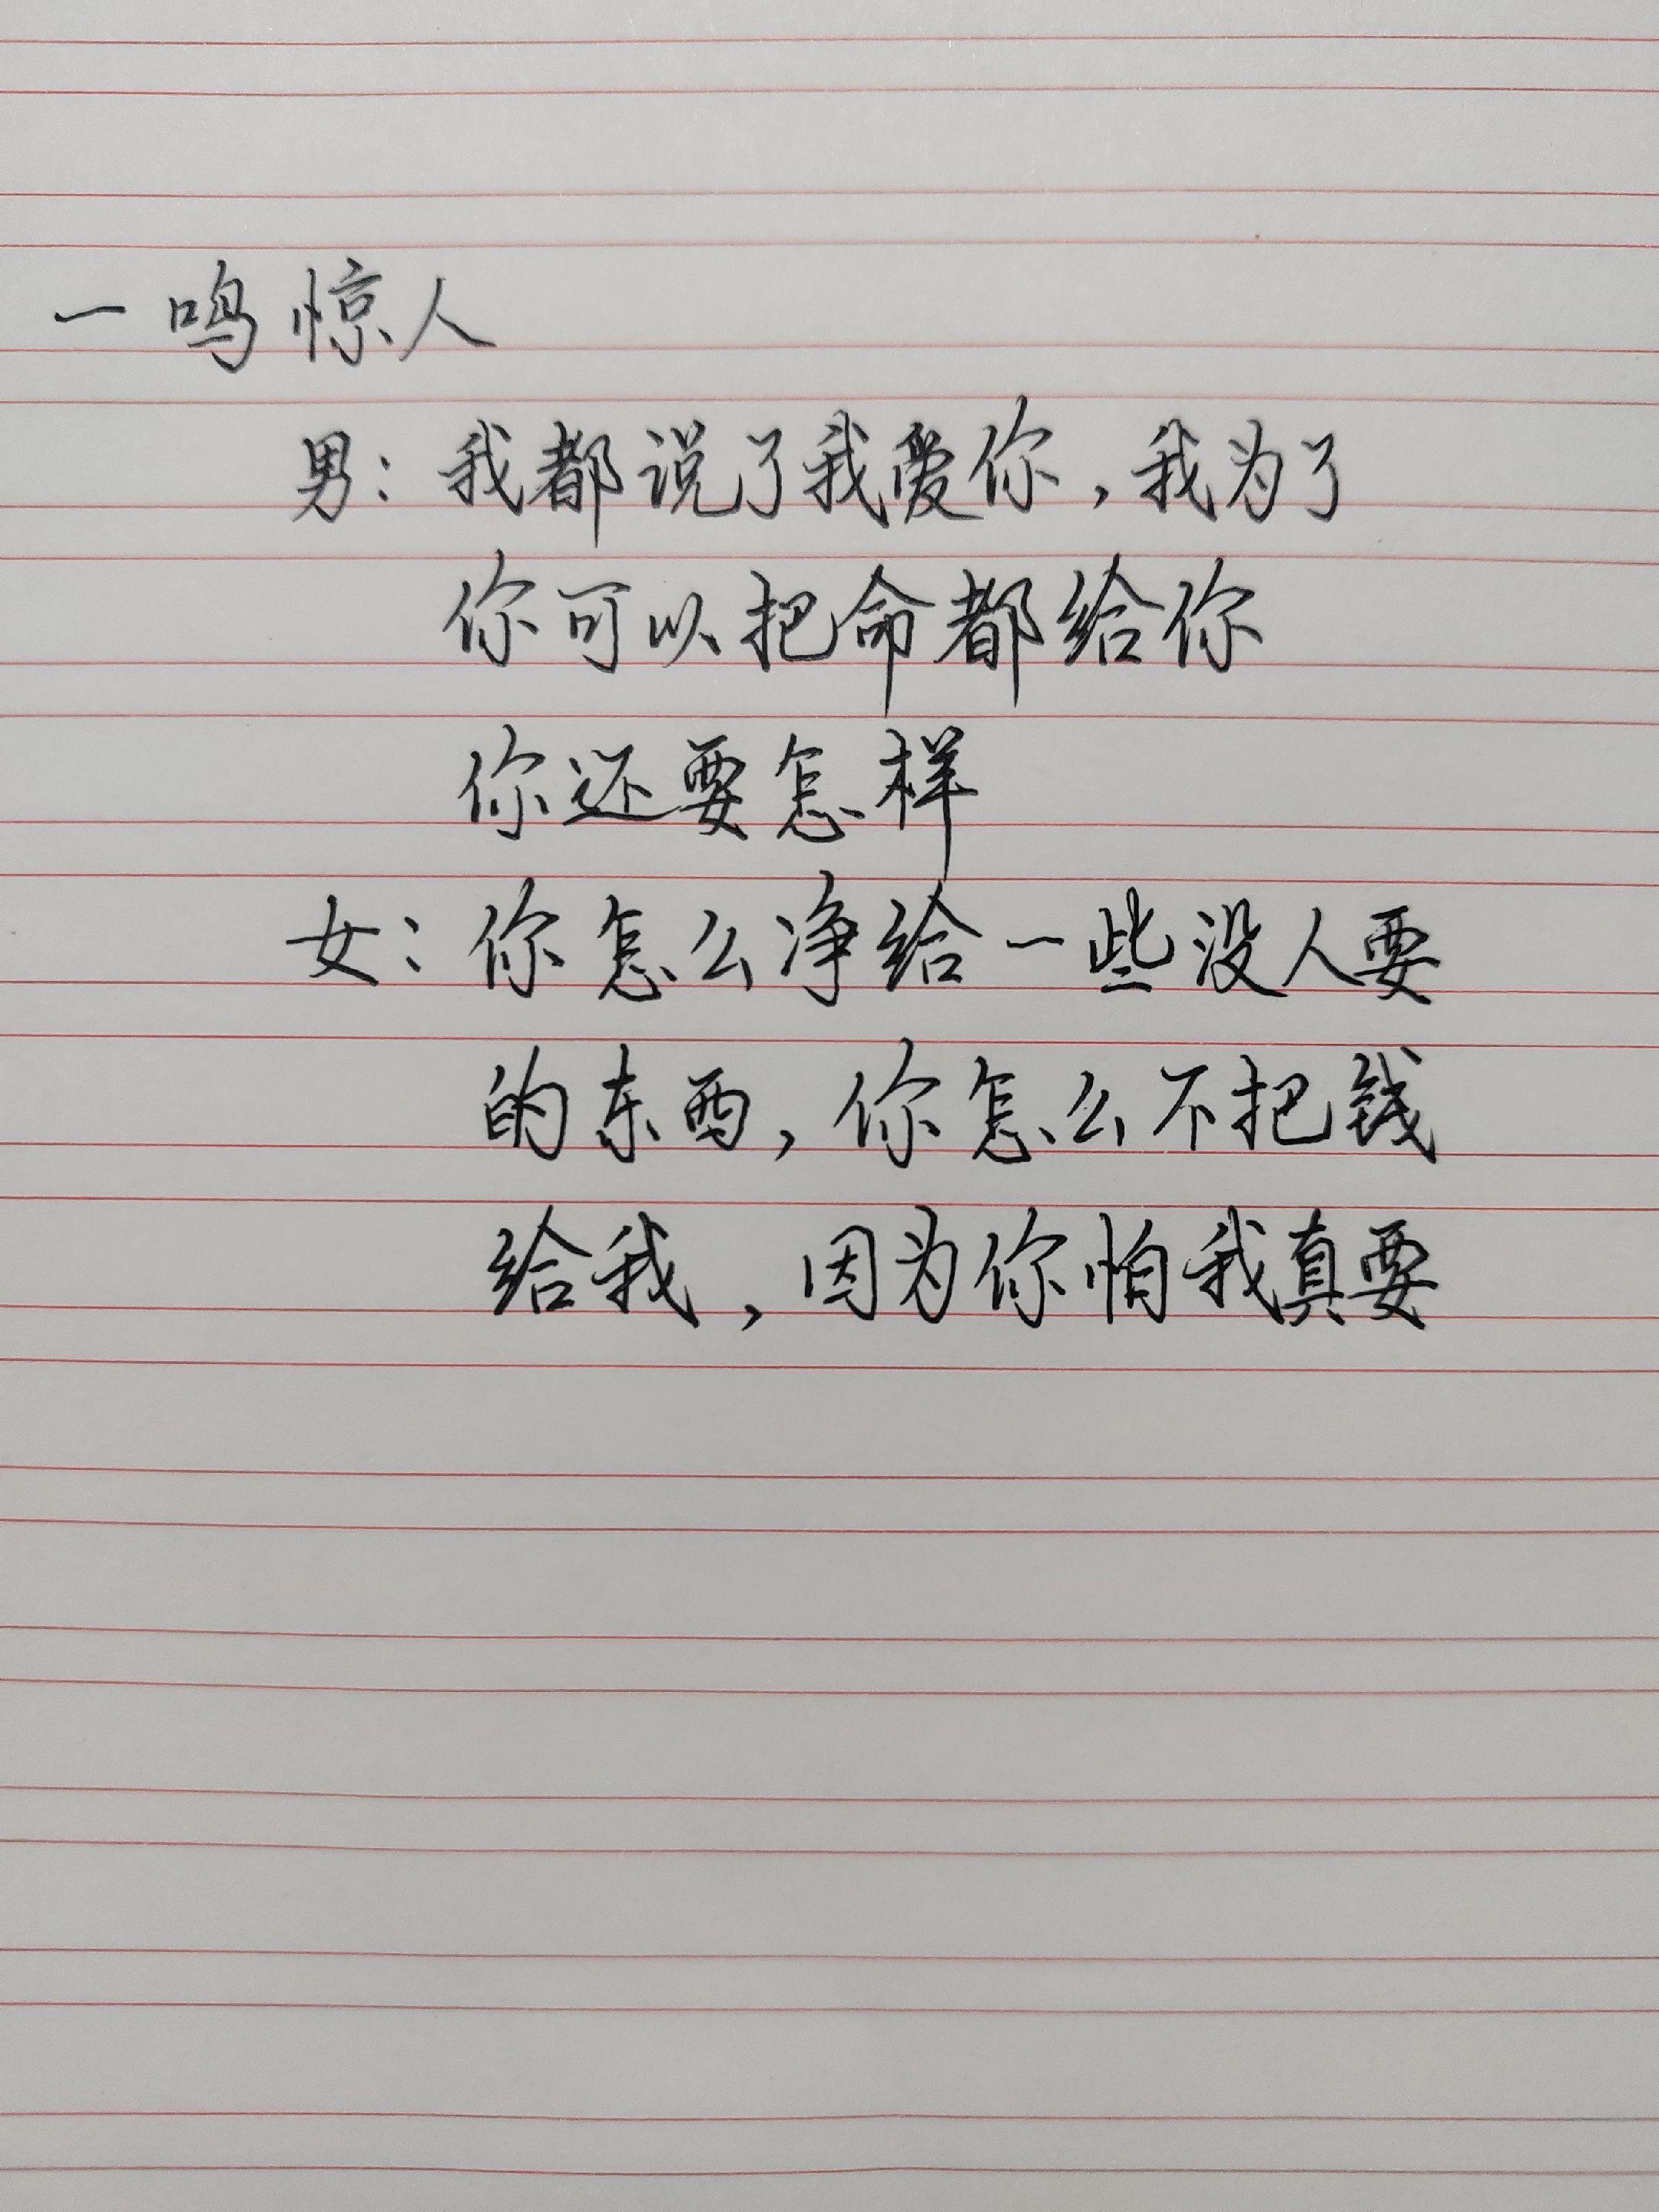 一鸣惊人
男：我都说了我爱你，我为了
你可以把命都给你
你还要怎样
女：你怎么净给一些没人要
的东西，你怎么不把钱
给我，因为你怕我真要